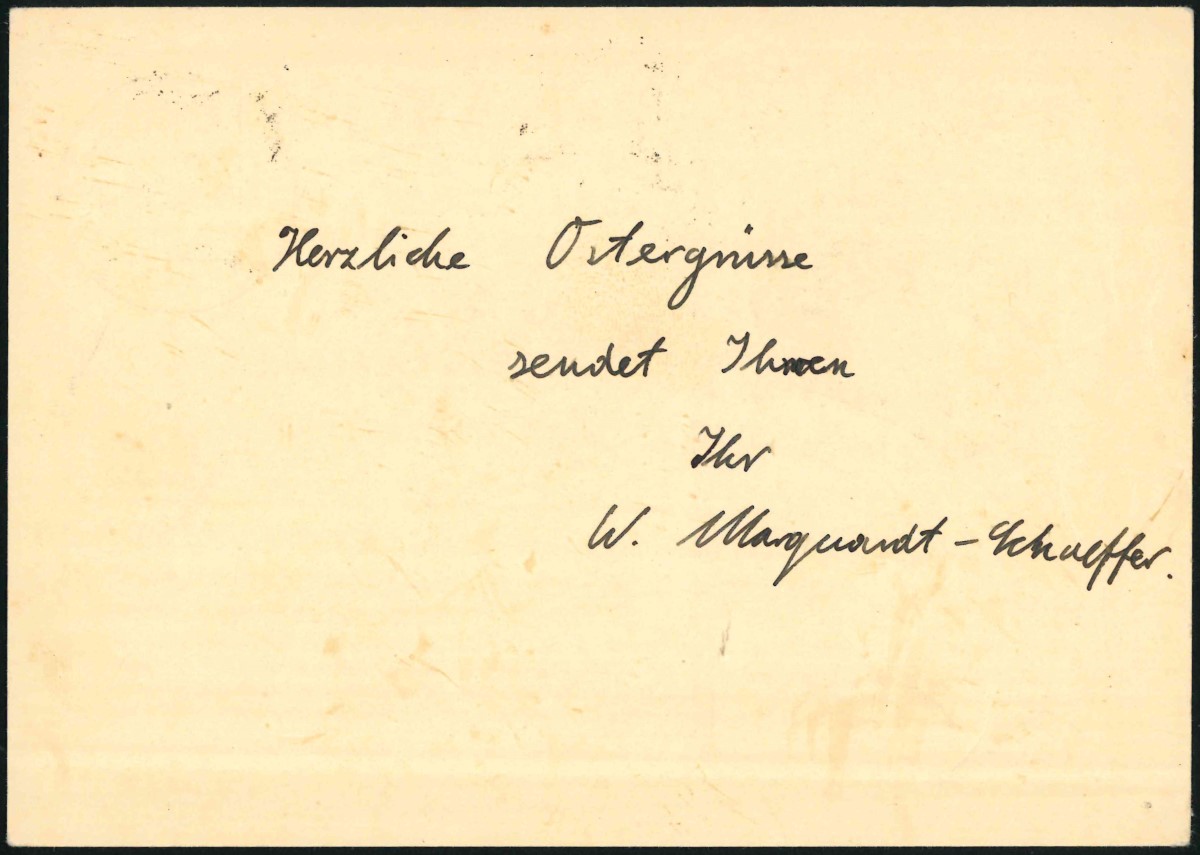 Herzliche Ostergrüsse
sendet Ihnen
Ihr
W. Marquardt - Schaeffer.